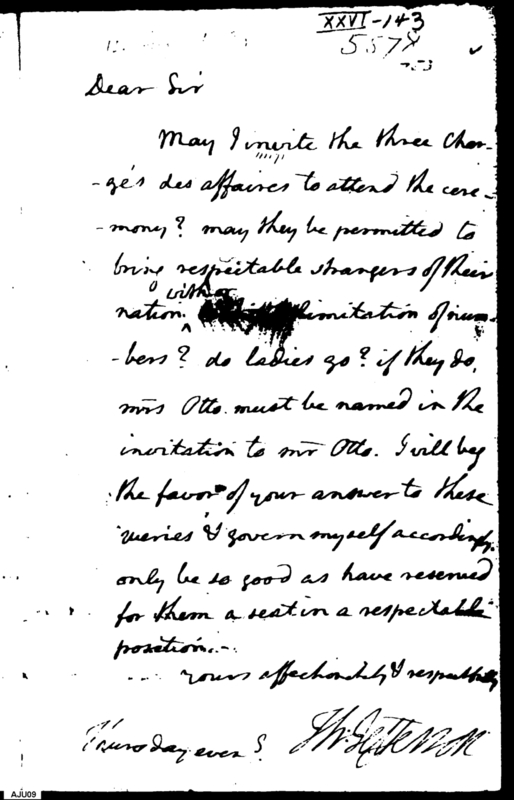 XXVI-143
557X
Dear Sir
May I invite the three Char-
-gés des affaires to attend the cere-
-mony? may they be permitted to
bring respectable strangers of their
with a
nation. limitation of num-
-bers? do ladies go? if they do,
mrs Otto must be named in the
invitation to mr Otto. I will beg
the favor of your answer to these
queries & govern myself accordingly.
only be so good as have reserved
for them a seat in a respectable
position.
yours affectionately & respectfully
Thursday even g.
Th: Jefferson
AJU09